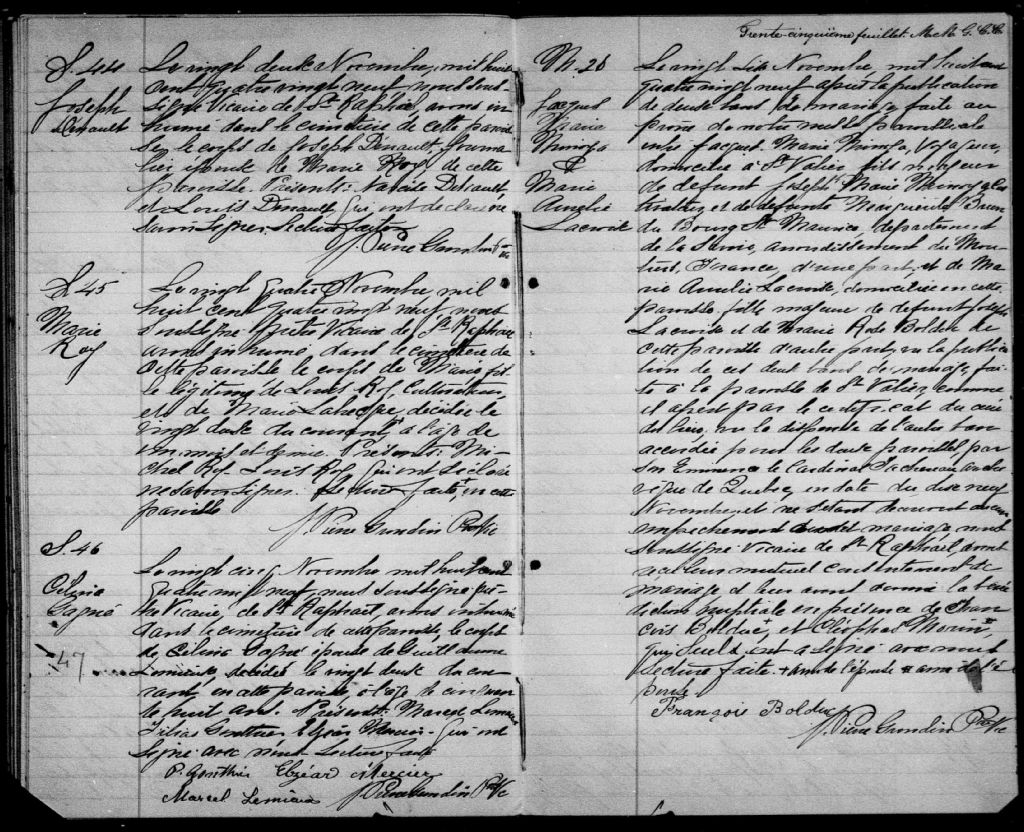 S. 44
Joseph
Denault
Le vingt deux Novembre, mil huit
cent quatre vingt neuf, nous sous-
signé Vicaire de St Raphaël, avons in
humé dans le cimetière de cette parois
se, le corps de Joseph Denault, journa
lier, époux de Marie Roy, de cette
paroisse. Présents: Narcisse Denault
et Louis Denault, qui ont déclaré ne
savoir signer. Lecture faite.
J. Pierre Grondin Ptre
Vic
S. 45
Marie
Roy
Le vingt quatre Novembre, mil
huit cent quatre vingt neuf, nous
soussigné Prêtre Vicaire de St Raphaël
avons inhumé, dans le cimetière de
cette paroisse le corps de Marie, fil
le légitime de Louis Roy, Cultivateur,
et de Marie décédée le
vingt deux du courant, à l'âge de
un mois et demie. Présents: Mi-
chel Roy, Louis Roy, qui ont déclaré
ne savoir signer. Lecture faite, en cette
paroisse
J. Pierre Grondin Ptre Vic
S. 46
Célina
Gagné
47
Le vingt cinq Novembre mil huit cent
quatre vingt neuf, nous soussigné prê-
tre Vicaire de St Raphaël avons inhumé
dans le cimetière de cette paroisse, le corps
de Célina Gagné épouse de Guillaume
Lemieux, décédée le vingt deux du cou
rant, en cette paroisse à l'âge de cinquan
te huit ans. Présents: Marcel Lemieux
Gonthier Elzéar Mercier qui ont
signé avec nous. Lecture faite
P. Gonthier Elzéar Mercier
Marcel Lemieux J. Pierre Grondin Ptre Vc
Trente-cinquième feuillet. M. M. G. C. C.
M. 26
Jacques
Marie
&
Marie
Amélie
Lacroix
Le vingt six Novembre, mil huit cent
quatre vingt neuf après la publication
de deux bans de mariage, faite au
prône de notre messe paroissiale
entre Jacques Marie Voyageur,
domicilié à St Valier, fils majeur
de défunt Joseph Marie Cul
tivateur, et de défunte Marguerite
du Bourg St Maurice, département
de la Savoie, arrondissement du Mou
tiers, France, d'une part, et de Ma
rie Amélie Lacroix, domiciliée en cette
paroisse, fille majeure de défunt Joseph
Lacroix et de Marie Rose Bolduc de
cette paroisse d'autre part, vu la publica
tion de ces deux bans de mariage, fai
te à la paroisse de St Valier, comme
il apert par le certificat du curé
des lieux, vu la dispense de l'autre ban
accordée pour les deux paroisses par
Son Eminence le Cardinal Taschereau arche
vêque de Québec, en date du dix neuf
Novembre, et ne s'étant découvert aucun
empêchement au dit mariage, nous
soussigné Vicaire de St Raphaël avons
reçu leur mutuel consentement de
mariage et leur avons donné la béné
diction nuptiale en présence de Fran
çois Bolduc +, et Cléophas Morin
qui seul a signé avec nous
Lecture faite. + ami de l'épouse ami de l'é
poux
François Bolduc
J. Pierre Grondin Ptre Vc